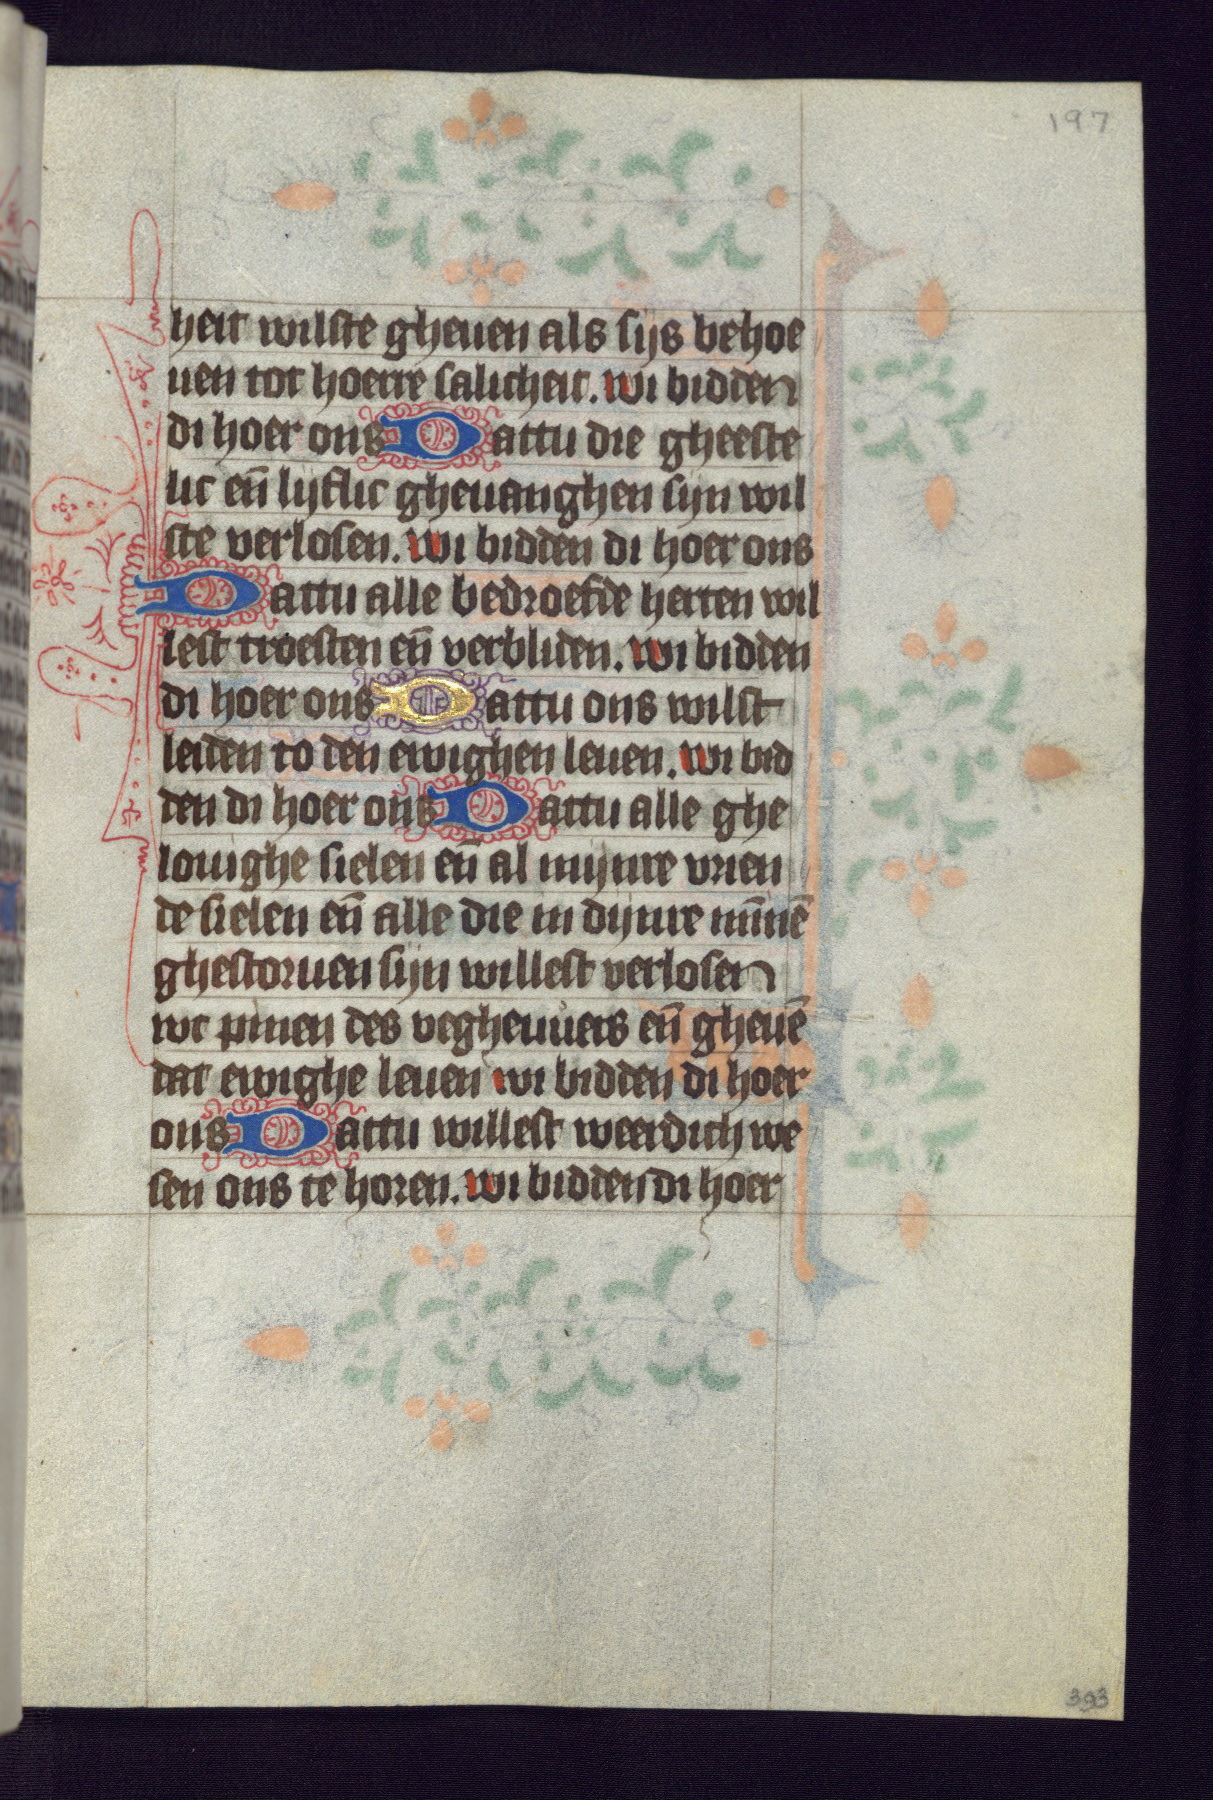 197
heit wilste gheuen als sijs behoe
uen tot hoerre salicheit. Wi bidden
di hoer ons Dattu die gheeste
lic eñ lijflic gheuanghen sijn wil
ste verlosen. Wi bidden di hoer ons
Dattu alle bedroefde herten wil
lest troesten eñ verbliden. Wi bidden
di hoer ons Dattu ons wilst
leiden to den ewighen leuen. Wi bid
den di hoer ons Dattu alle ghe
louighe sielen eñ al mijnre vrien
de sielen eñ alle die in dijnre mīnē
ghestoruen sijn willest verlosen
wt pinen des vegheuuers eñ gheuē
dat ewighe leuen wi bidden di hoer
ons Dattu willest weerdich we
sen ons te horen. Wi bidden di hoer
393